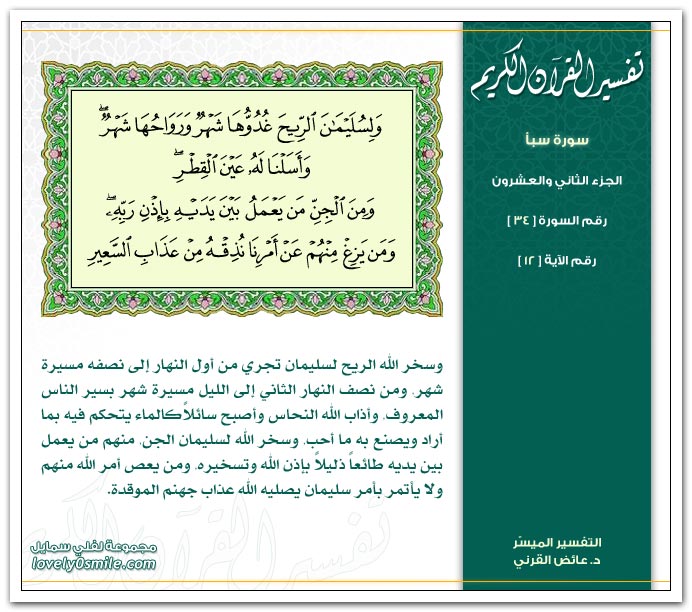 تفسير القرآن الكريم
سورة سبأ
الجزء الثاني والعشرون
رقم السورة [ ٣٤ ]
رقم الآية [ ١٢ ]
وَلِسُلَيْمَٰنَ ٱلرِّيحَ غُدُوُّهَا شَهْرٌ وَرَوَاحُهَا شَهْرٌ ۖ
وَأَسَلْنَا لَهُۥ عَيْنَ ٱلْقِطْرِ ۖ
وَمِنَ ٱلْجِنِّ مَن يَعْمَلُ بَيْنَ يَدَيْهِ بِإِذْنِ رَبِّهِۦ ۖ
وَمَن يَزِغْ مِنْهُمْ عَنْ أَمْرِنَا نُذِقْهُ مِنْ عَذَابِ ٱلسَّعِيرِ
وسخر الله الريح لسليمان تجري من أول النهار إلى نصفه مسيرة
شهر، ومن نصف النهار الثاني إلى الليل مسيرة شهر بسير الناس
المعروف، وأذاب الله النحاس وأصبح سائلاً كالماء يتحكم فيه بما
أراد ويصنع به ما أحب، وسخر الله لسليمان الجن، منهم من يعمل
بين يديه طائعاً ذليلاً بإذن الله وتسخيره، ومن يعص أمر الله منهم
ولا يأتمر بأمر سليمان يصليه الله عذاب جهنم الموقدة.
التفسير الميسّر
د. عائض القرني
مجموعة لفلي سمايل
lovely0smile.com
تفسير القرآن الكريم